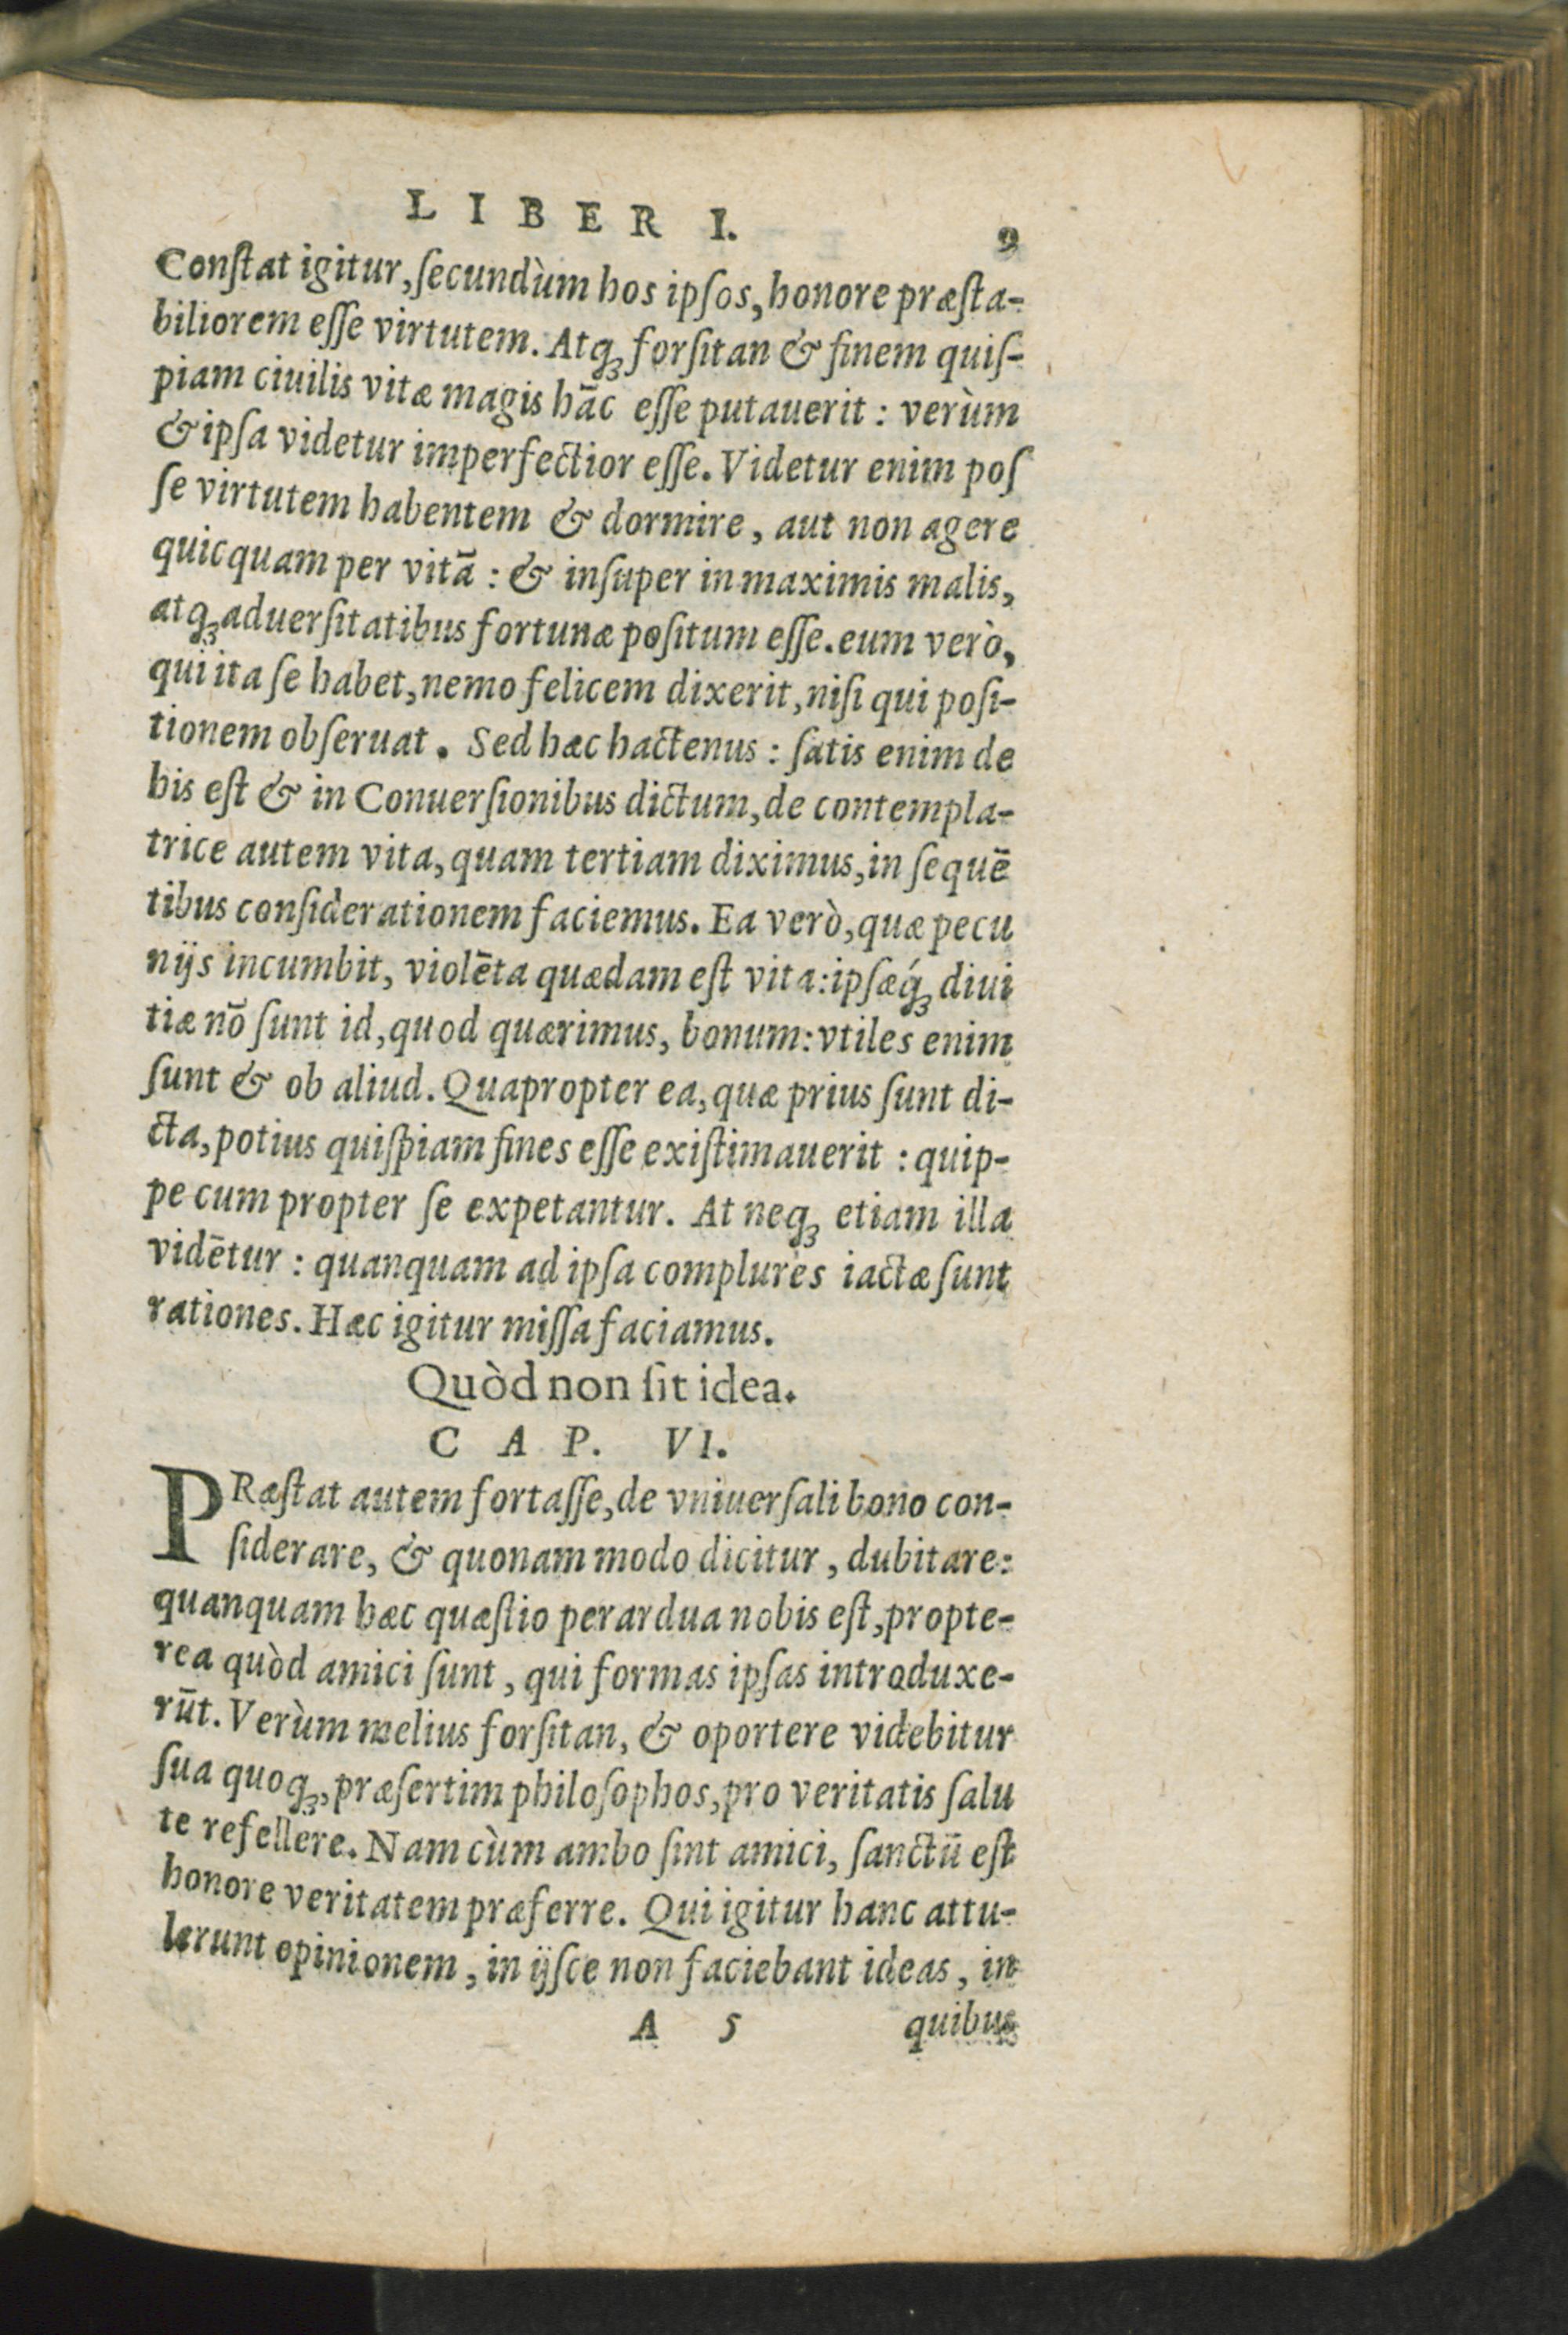 LIBER I. 9
Conſtat igitur, ſecundùm hos ipſos, honore præſta-
biliorem eſſe virtutem. Atqꝫ forſitan & finem quiſ-
piam ciuilis vitæ magis hāc eſſe putauerit: verùm
& ipſa videtur imperfectior eſſe. Videtur enim poſ
ſe virtutem habentem & dormire, aut non agere
quicquam per vitā: & inſuper in maximis malis,
atqꝫ aduerſitatibus fortunæ poſitum eſſe. eum verò,
qui ita ſe habet, nemo felicem dixerit, niſi qui poſi-
tionem obſeruat. Sed hæc hactenus: ſatis enim de
his eſt & in Conuerſionibus dictum, de contempla-
trice autem vita, quam tertiam diximus, in ſequē
tibus conſiderationem faciemus. Ea verò, quæ pecu
nijs incumbit, violēta quædam eſt vita: ipſæq́ꝫ diui
tiæ nō ſunt id, quod quærimus, bonum: vtiles enim
ſunt & ob aliud. Quapropter ea, quæ prius ſunt di-
cta, potius quiſpiam fines eſſe exiſtimauerit: quip-
pe cum propter ſe expetantur. At neqꝫ etiam illa
vidētur: quanquam ad ipſa complures iactæ ſunt
rationes. Hæc igitur miſſa faciamus.
Quòd non ſit idea.
CAP. VI.
PRæſtat autem fortaſſe, de vniuerſali bono con-
ſiderare, & quonam modo dicitur, dubitare:
quanquam hæc quæſtio perardua nobis eſt, propte-
rea quòd amici ſunt, qui formas ipſas introduxe-
rūt. Verùm melius forſitan, & oportere videbitur
ſua quoqꝫ, præſertim philoſophos, pro veritatis ſalu
te refellere. Nam cùm ambo ſint amici, ſanctū eſt
honore veritatem præferre. Qui igitur hanc attu-
lerunt opinionem, in ijſce non faciebant ideas, in
A 5 quibus